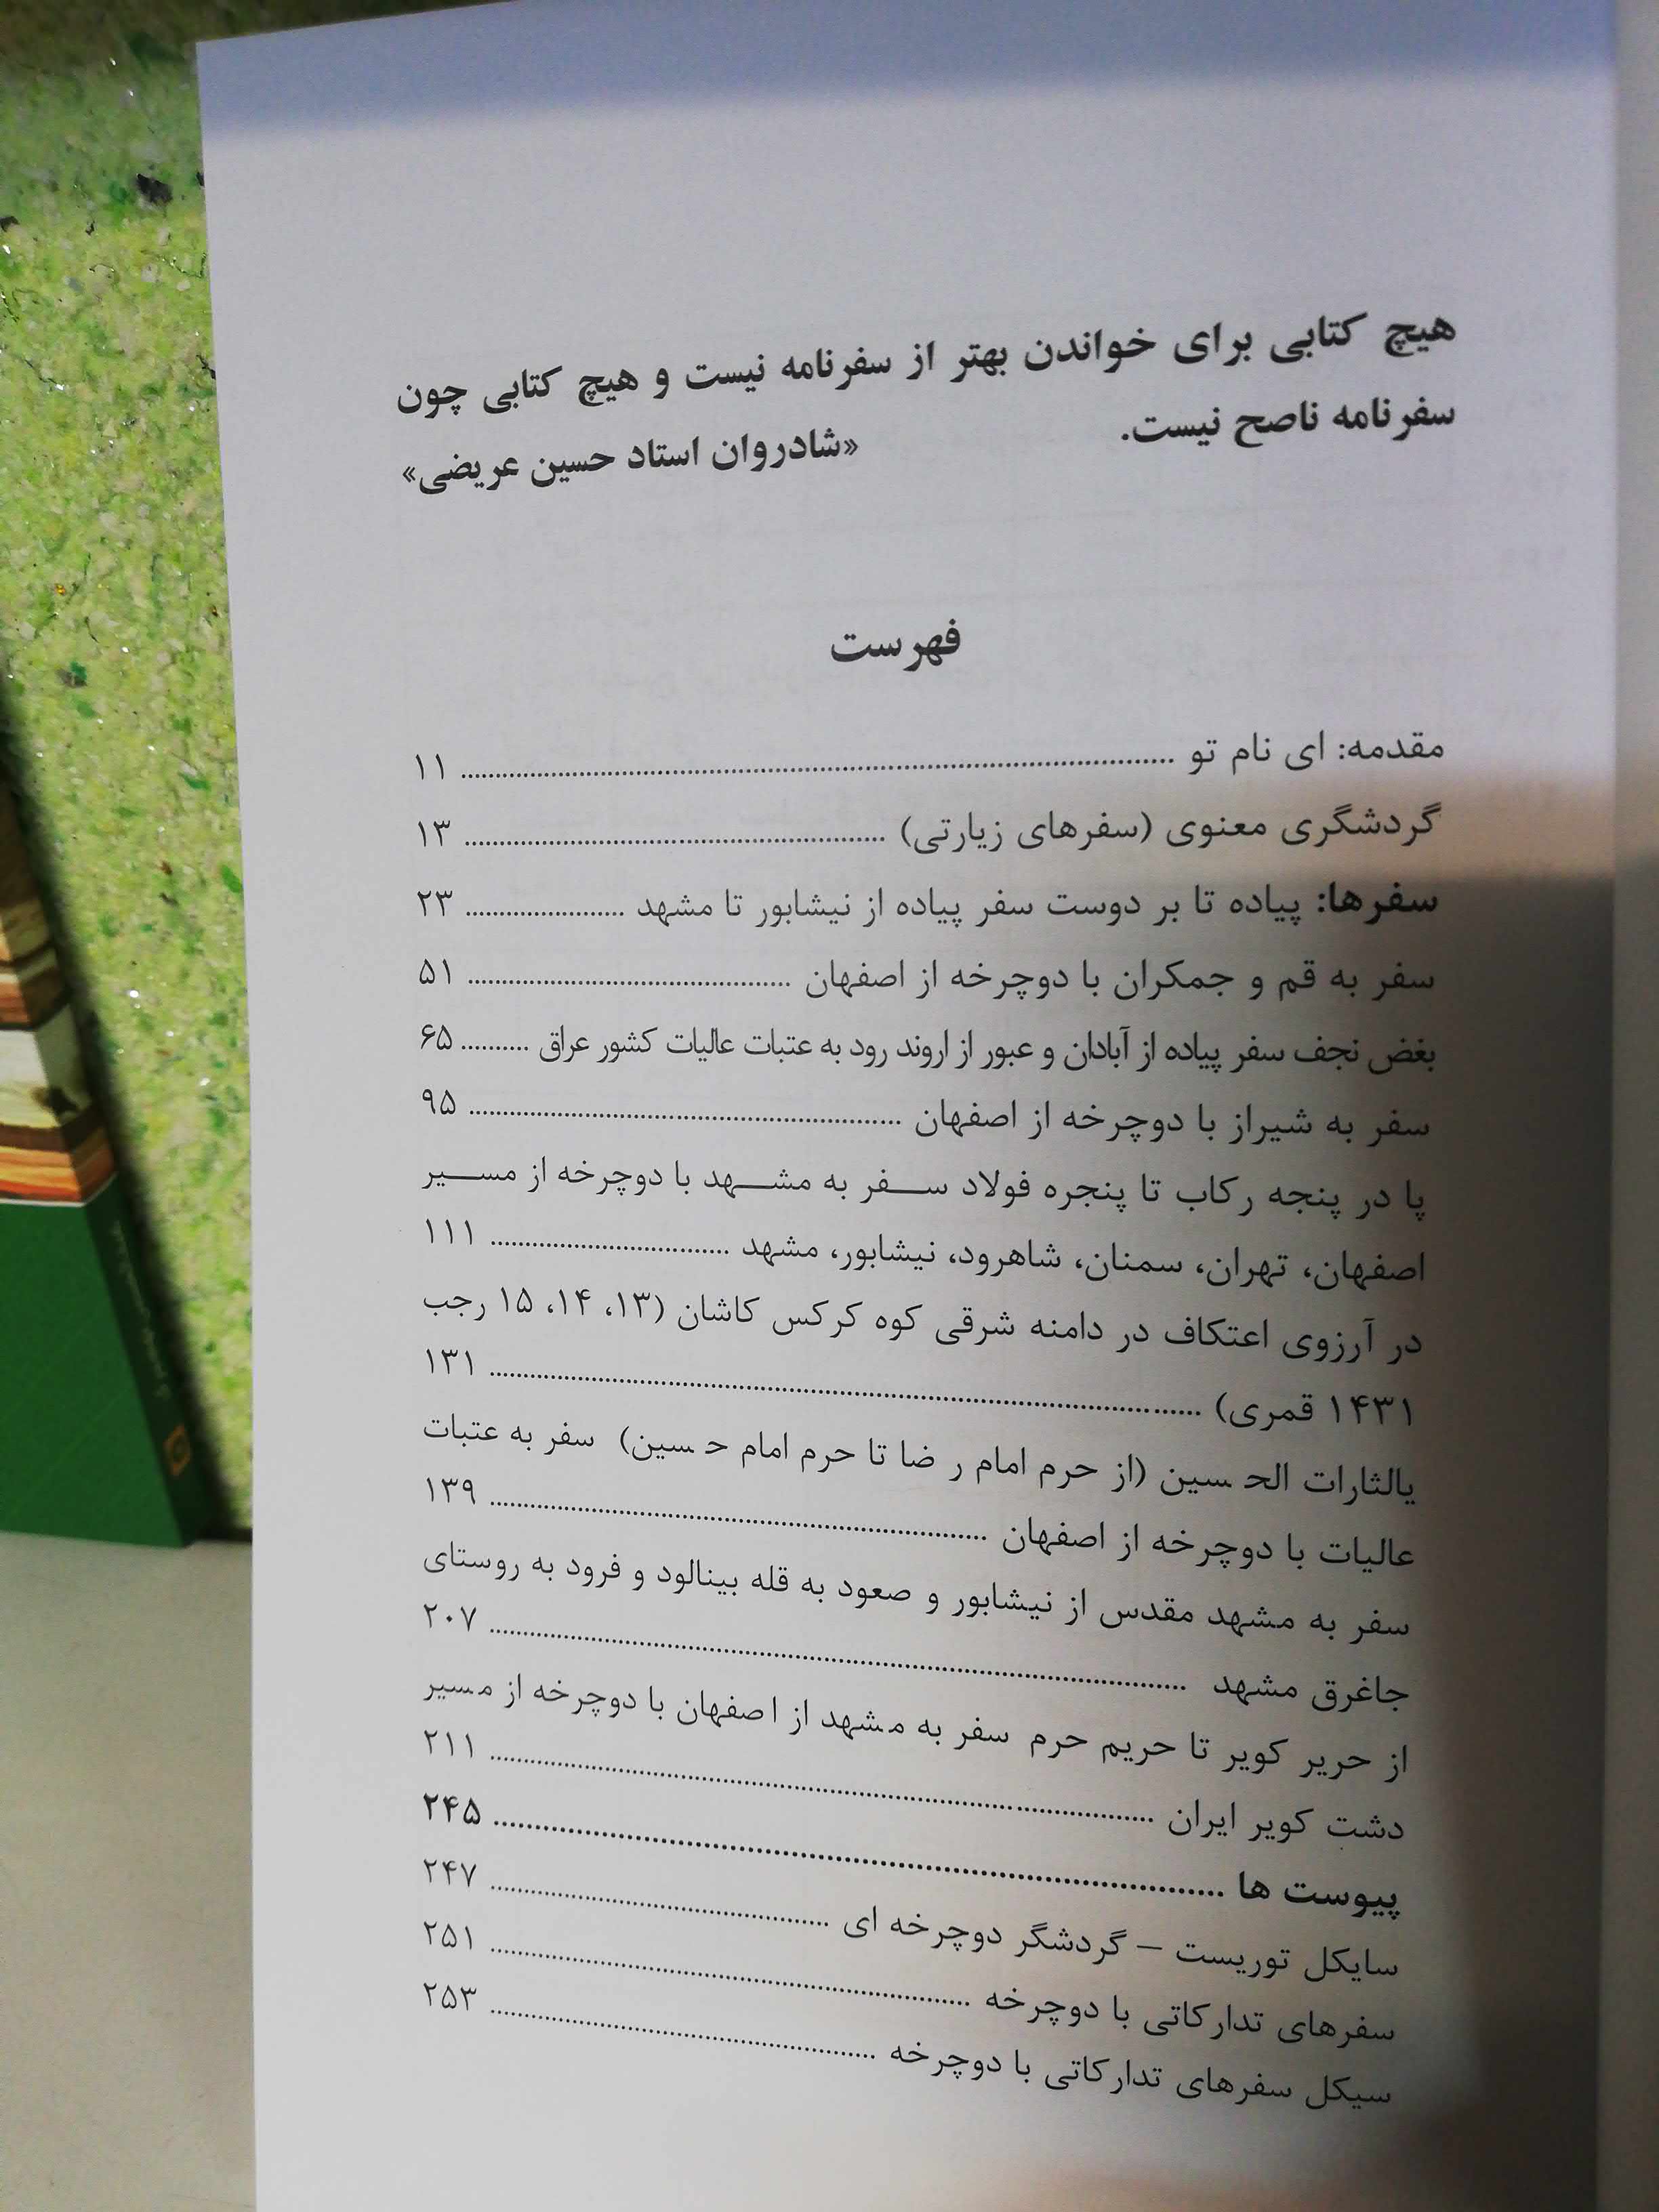 هیچ کتابی برای خواندن بهتر از سفرنامه نیست و هیچ کتابی چون
سفرنامه ناصح نیست. «شادروان استاد حسین عریضی»
فهرست
مقدمه: ای نام تو ........ ۱۱
گردشگری معنوی (سفرهای زیارتی) ........ ۱۳
سفرها: پیاده تا بر دوست سفر پیاده از نیشابور تا مشهد ........ ۲۳
سفر به قم و جمکران با دوچرخه از اصفهان ........ ۵۱
بغض نجف سفر پیاده از آبادان و عبور از اروند رود به عتبات عالیات کشور عراق ........ ۶۵
سفر به شیراز با دوچرخه از اصفهان ........ ۹۵
پا در پنجه رکاب تا پنجره فولاد سفر به مشهد با دوچرخه از مسیر
اصفهان، تهران، سمنان، شاهرود، نیشابور، مشهد ........ ۱۱۱
در آرزوی اعتکاف در دامنه شرقی کوه کرکس کاشان (۱۳، ۱۴، ۱۵ رجب
۱۴۳۱ قمری) ........ ۱۳۱
یالثارات الحسین (از حرم امام رضا تا حرم امام حسین) سفر به عتبات
عالیات با دوچرخه از اصفهان ........ ۱۳۹
سفر به مشهد مقدس از نیشابور و صعود به قله بینالود و فرود به روستای
جاغرق مشهد ........ ۲۰۷
از حریر کویر تا حریم حرم سفر به مشهد از اصفهان با دوچرخه از مسیر
دشت کویر ایران ........ ۲۱۱
پیوست ها ........ ۲۴۵
سایکل توریست – گردشگر دوچرخه ای ........ ۲۴۷
سفرهای تدارکاتی با دوچرخه ........ ۲۵۱
سیکل سفرهای تدارکاتی با دوچرخه ........ ۲۵۳